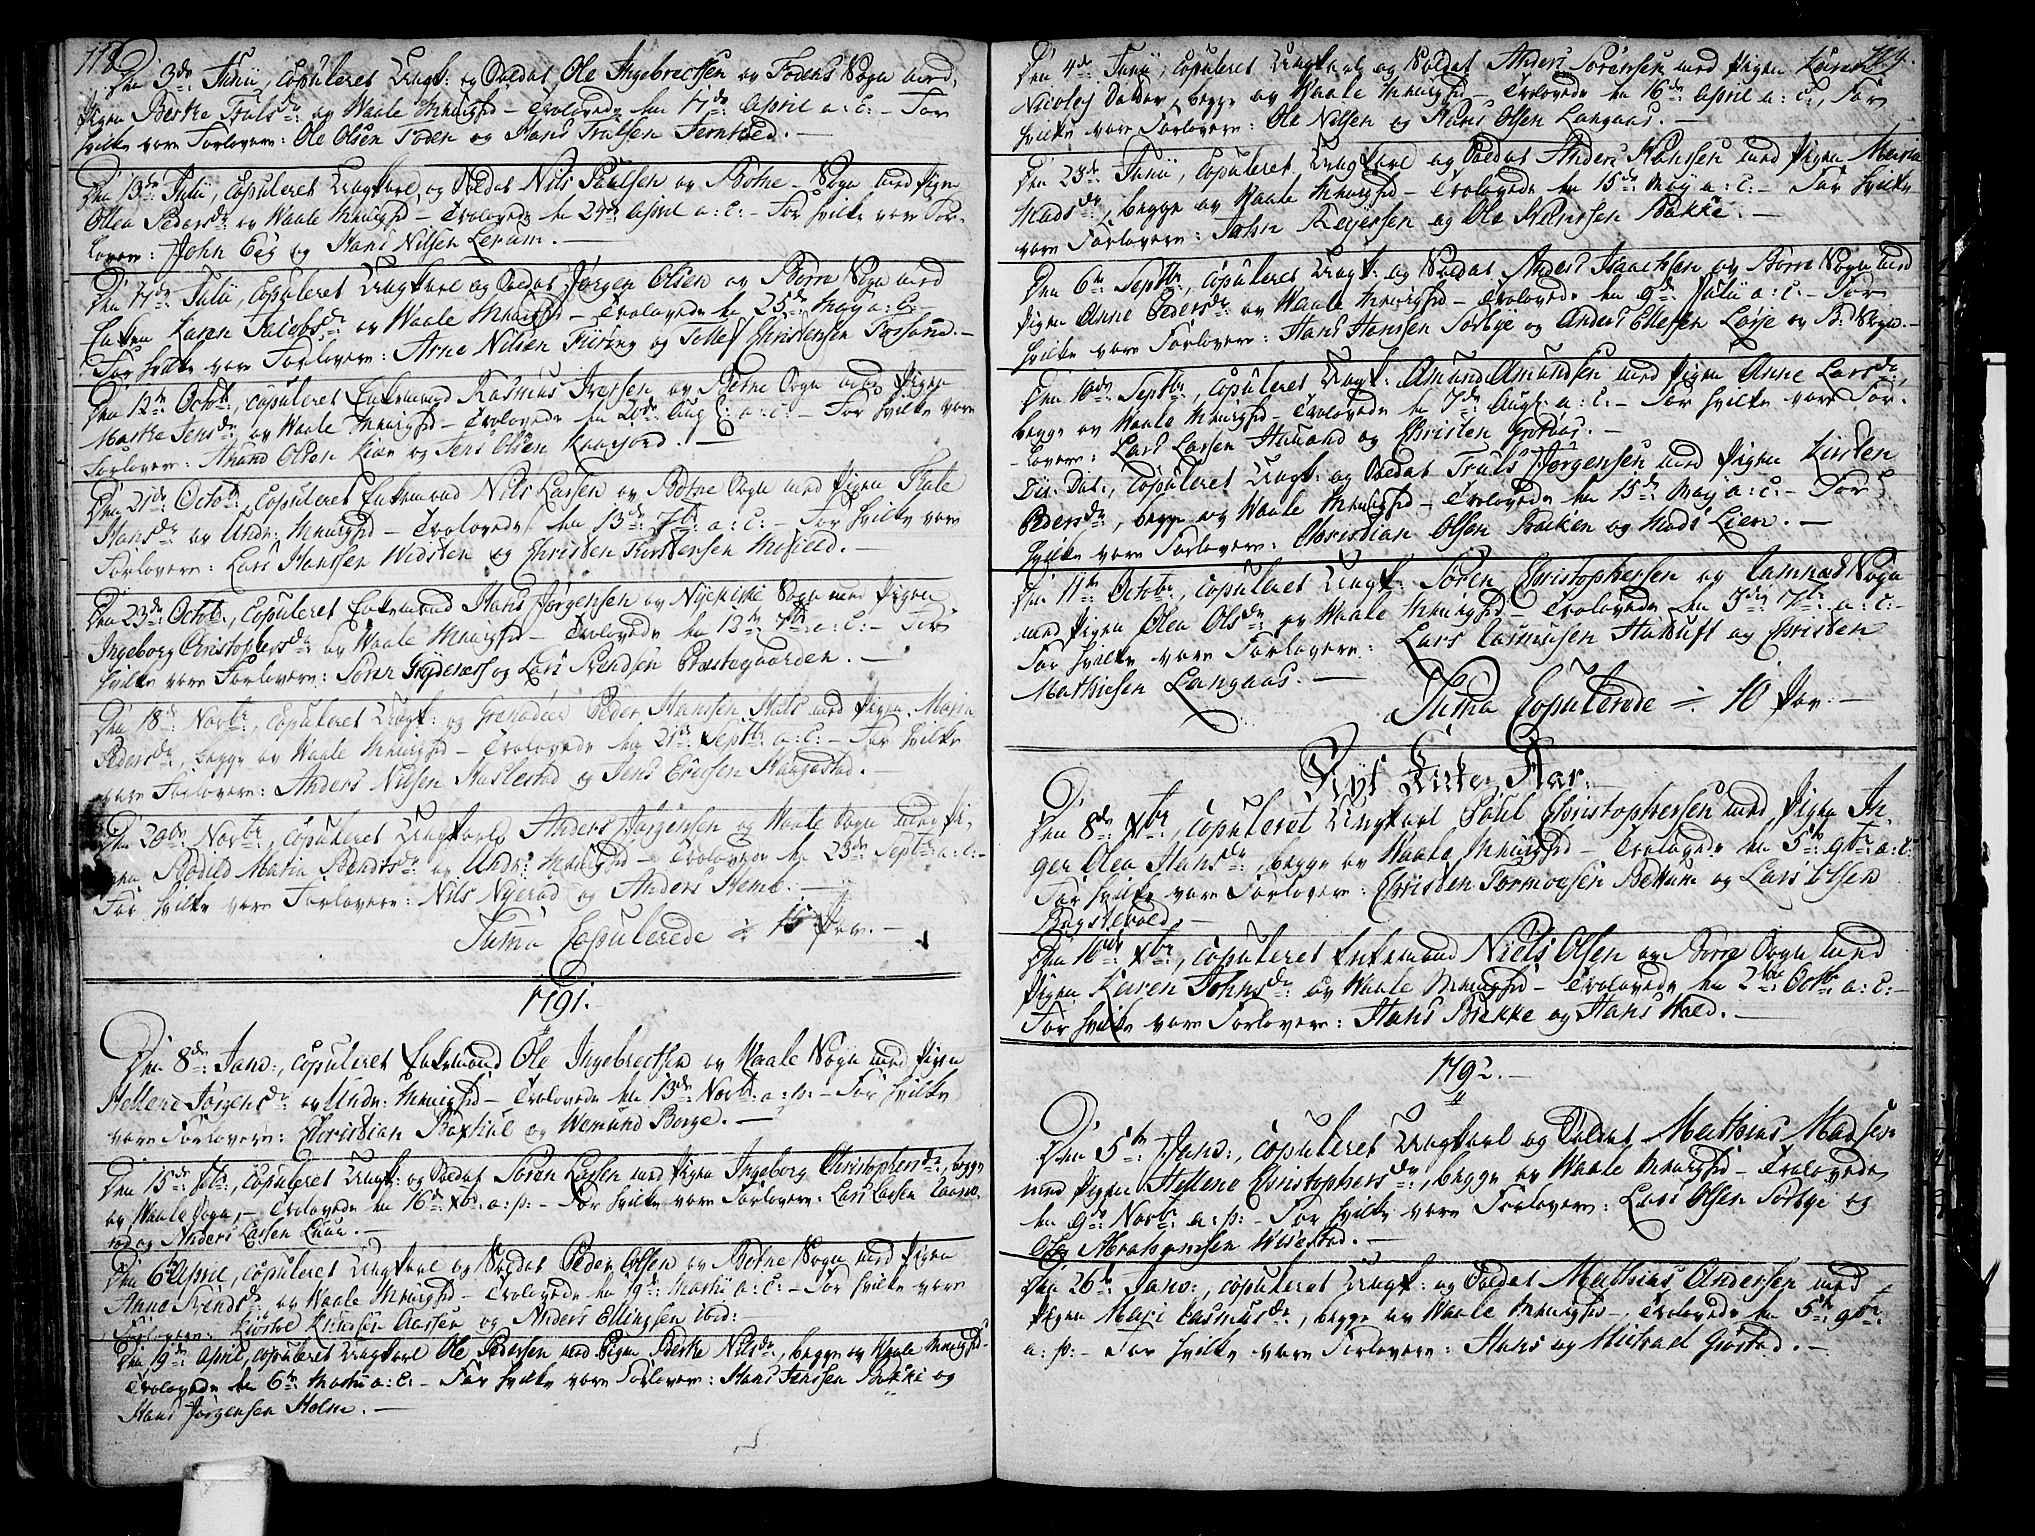 118.
Den 3de Junii, Copuleret Ungk: og Soldat Ole Ingebrectsen av Fodens Sogn med
Pigen Berthe Trulsdr: av Waale Menighd – Trolovede den 17de April a: c: – For
hvilke vare Forlovere: Ole Olsen Foden og Hans Trulsen
Den 13de Julii, Copuleret Ungkarl og Soldat Nils Paulsen av Botne – Sogn med Pigen
Ollea Pedersdr: av Waale Menighd – Trolovede den 24de April a: c: – For hvilke vare For-
lovere: John Eeg og Hans Nilsen Lerum. –
Den 17de Julii, Copuleret Ungkarl og Soldat Jørgen Olsen av Borre Sogn med
Enken Karen Jacobsdr: av Waale Menighd – Trolovede den 25de Maÿ a: c: –
For hvilke vare Forlovere: Arne Nilsen Firing og Tellef Christensen –
Den 12te Octobr:, Copuleret Enkemand Rasmus Iversen av Botne Sogn med Pigen
Marthe Jensdr:, av Waale Menighd – Trolovede den 20de Aug: a: c: – For hvilke vare
Forlovere: Amund Olsen Kiær og Jens Olsen Kaafjord. –
Den 21de Octobr:, Copuleret Enkemand Nils Larsen av Botne Sogn med Pigen
Hansdr: av Undr: Menighd – Trolovede den 13de 7br: a: c: – For hvilke vare
Forlovere: Lars Hanssen Widsten og Christen Torstensen –
Den 23de Octobr:, Copuleret Enkemand Hans Jørgensen av Nÿekirke Sogn med Pigen
Ingeborg Christophersdr: av Waale Menighd – Trolovede den 12te 7br: a: c: – For
hvilke vare Forlovere: Søren og Lars Svendsen Præstegaarden. –
Den 18de Novbr:, Copuleret Ungk: og Granadeer Peder Hansen Hals med Pigen Maria
Pedersdr:, begge av Waale Menighd – Trolovede den 21de Septbr: a: c: – For hvilke
vare Forlovere: Anders Nilsen Haslestad og Jens Ericsen Haugestad. –
Den 20de Novbr:, Copuleret Ungkarl Anders Jørgensen av Waale Sogn med Pi-
gen Bodild Maria Bendtsdr: av Undr: Menighd – Trolovede den 23de Septbr: a: c: –
For hvilke vare Forlovere: Nils Nyerød og Anders Hemb. –
Suma Copulerede ÷ 15 Par. –
1791.
Den 8de Janv:, Copuleret Enkemand Ole Ingebrectsen av Waale Sogn med Pigen
Hellene Jørgensdr: av Undr: Menighd – Trolovede den 13de Novbr: a: p: – For hvilke
vare Forlovere: Christian og Wemund Borge. –
Den 15de Febr:, Copuleret Ungk: og Soldat Søren Larsen med Pigen Ingeborg Christophersdr:, begge
av Waale Sogn, – Trolovede den 16de Xbr: a: p: – For hvilke vare Forlovere: Lars Larsen
og Anders Larsen –
Den 6te April, Copuleret Ungkarl og Soldat Peder Olsen av Botne Sogn med Pigen
Anne Svendsdr: av Waale Menighd – Trolovede den 19de Martii a: c: – For hvilke vare
Forlovere: Knudsen Aassen og Anders Ellingsen ibid:
Den 19de April, Copuleret Ungkarl Ole Pedersen med Pigen Berthe Nilsdr:, begge av Waale Menighd –
Trolovede den 6te Martii a: c: – For hvilke vare Forlovere: Hans Jenssen Bakke og
Hans Jørgensen Holm. –
119.
Den 4de Junii, Copuleret Ungkarl og Soldat Anders Sørensen med Pigen Karen
Nicolaj Datter, begge av Waale Menighd – Trolovede den 16de April a: c:, For
hvilke vare Forlovere: Ole Nilsen og Hans Olsen Langaas. –
Den 23de Junii, Copuleret Ungkarl og Soldat Anders Hanssen med Pigen Maria
Madsdr:, begge av Waale Menighd – Trolovede den 15de Maÿ a: c: – For hvilke
vare Forlovere: John Reÿersen og Ole Hanssen Bakke. –
Den 6te Septbr:, Copuleret Ungk: og Soldat Anders Isaachsen av Borre Sogn med
Pigen Anne Pedersdr: av Waale Menighd – Trolovede den 9de Julii a: c: – For
hvilke vare Forlovere: Hans Hansen Sørbye og Anders Ellefsen av B: Sogn. –
Den 10de Septbr:, Copuleret Ungk: Amund Amundsen med Pigen Anne Larsdr:,
begge av Waale Menighd – Trolovede den 7de Aug: a: c: – For hvilke vare For-
lovere: Lars Larsen Hauand og Christen –
Dit: Dat:, Copuleret Ungk: og Soldat Truls Jørgensen med Pigen Kirsten
Pedersdr:, begge av Waale Menighd – Trolovede den 15de Maÿ a: c: – For
hvilke vare Forlovere: Christian Olsen Bakken og Mads Lien. –
Den 11te Octobr:, Copuleret Ungk: Søren Christophersen av Ramnæs Sogn
med Pigen Olea Olsdr: av Waale Menighd – Trolovede den 3de 7br: a: c: –
For hvilke vare Forlovere: Lars Rasmusen og Christen
Mathiesen Langaas. –
Suma Copulerede ÷ 10 Par. –
Nÿt Kirke Aar.
Den 8de Xbr:, Copuleret Ungkarl Povel Christophersen med Pigen In-
ger Olea Hansdr:, begge av Waale Menighd – Trolovede den 5te 9br: a: c:
For hvilke vare Forlovere: Christen Tormoesen Bettum og Lars Olsen
–
Den 16de Xbr:, Copuleret Enkemand Niels Olsen av Borre Sogn med
Pigen Karen Johnsdr: av Waale Menighd – Trolovede den 2den Octbr: a: c: –
For hvilke vare Forlovere: Hans Bakke og Hans Hoed. –
1792. –
Den 5te Janv:, Copuleret Ungkarl og Soldat Mathias Madsen
med Pigen Hellene Christophersdr:, begge av Waale Menighd – Trolovede
den 9de Novbr: a: p: – For hvilke vare Forlovere: Lars Olsen Sørbÿe og
Ole Abrahamsen Wivestad. –
Den 26de Janv:, Copuleret Ungk: og Soldat Mathias Andersen med
Pigen Mari Rasmusdr:, begge av Waale Menighd – Trolovede den 5te 9br:
a: p: – For hvilke vare Forlovere: Hans og Michael Griostad. –